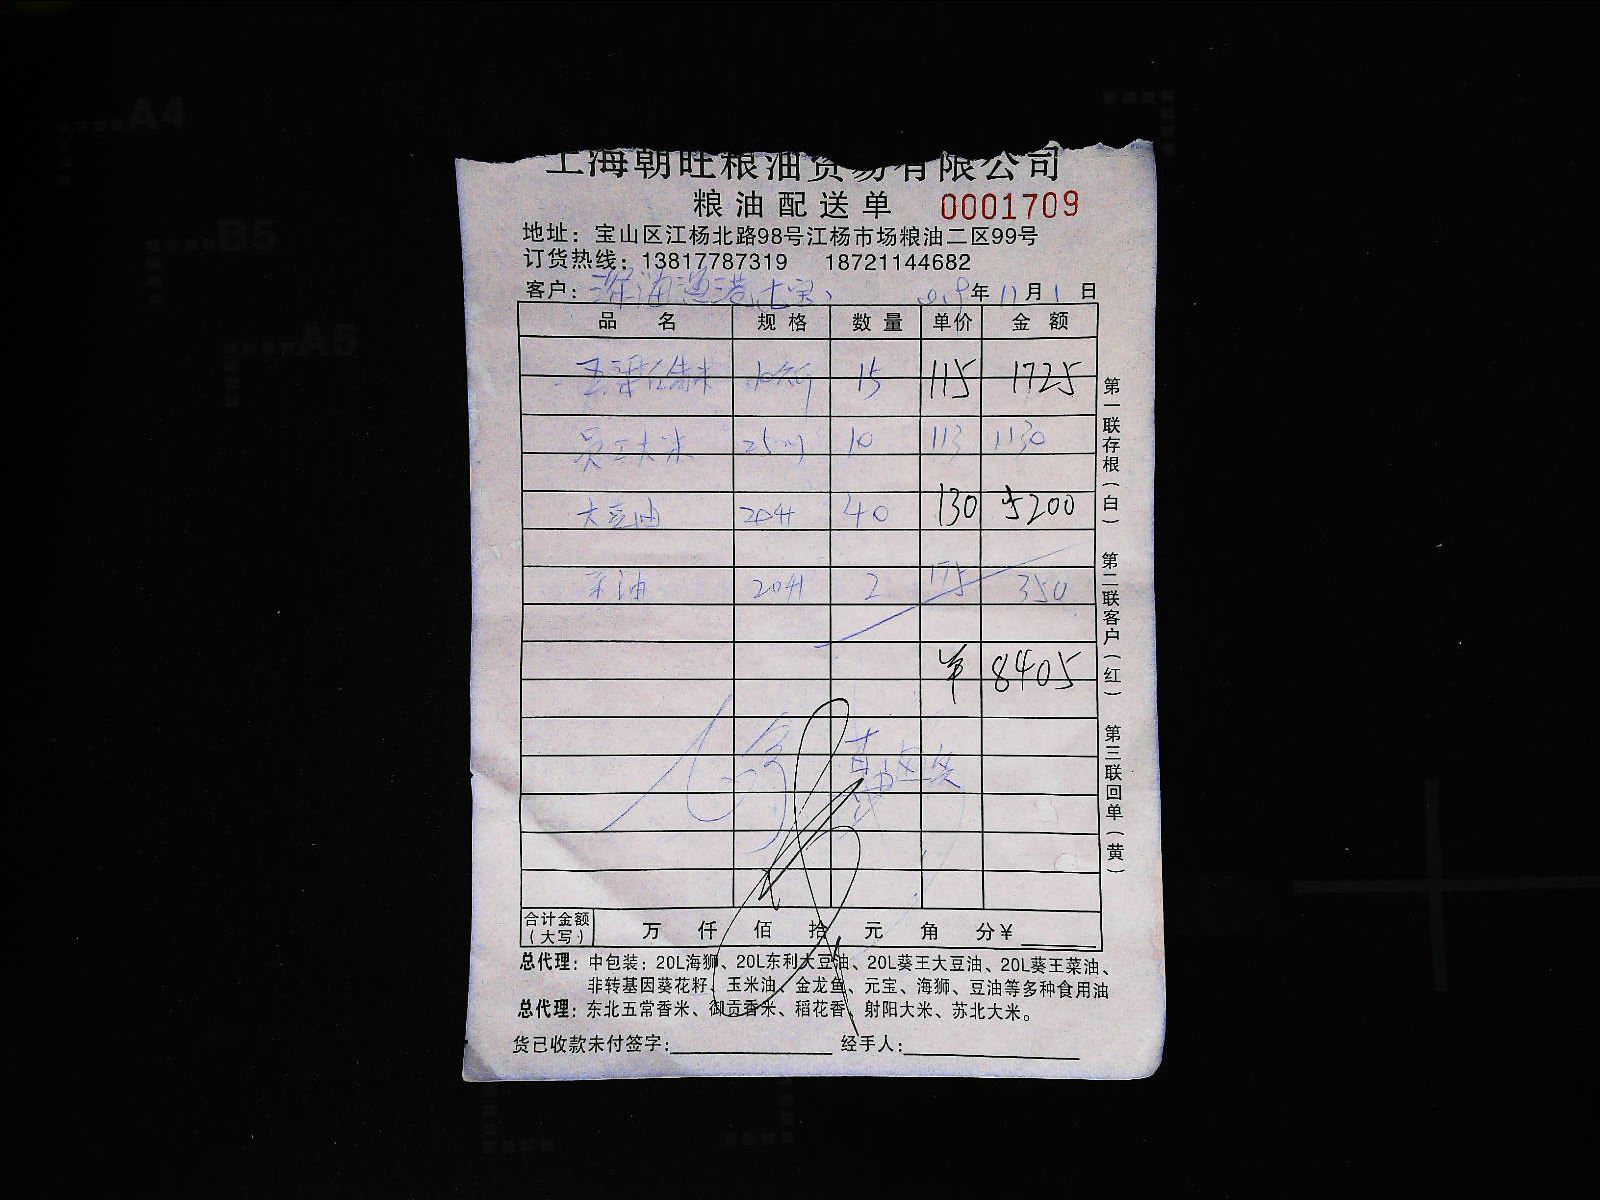 上海朝旺粮油贸易有限公司
粮油配送单 0001709
地址：宝山区江杨北路98号江杨市场粮油二区99号
订货热线：13817787319 18721144682
客户： 年 11月1日
品名 规格 数量 单价 金额
15 115 1725
员工大米 10 113 1130
大豆油 20升 40 130 5200
20升 2 175 350
¥ 8405
合计金额（大写） 万 仟 佰 拾 元 角 分¥
总代理：中包装：20L海狮、20L东利大豆油、20L葵王大豆油、20L葵王菜油、
非转基因葵花籽、玉米油、金龙鱼、元宝、海狮、豆油等多种食用油
总代理：东北五常香米、御贡香米、稻花香、射阳大米、苏北大米。
货已收款未付签字： 经手人：
第一联存根（白）
第二联客户（红）
第三联回单（黄）
A4
B5
A5